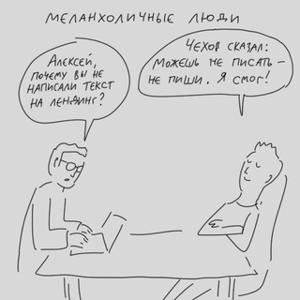 МЕЛАНХОЛИЧНЫЕ ЛЮДИ
АЛЕКСЕЙ,
ПОЧЕМУ ВЫ НЕ
НАПИСАЛИ ТЕКСТ
НА ЛЕНДИНГ?
ЧЕХОВ СКАЗАЛ:
МОЖЕШЬ НЕ ПИСАТЬ –
НЕ ПИШИ. Я СМОГ!